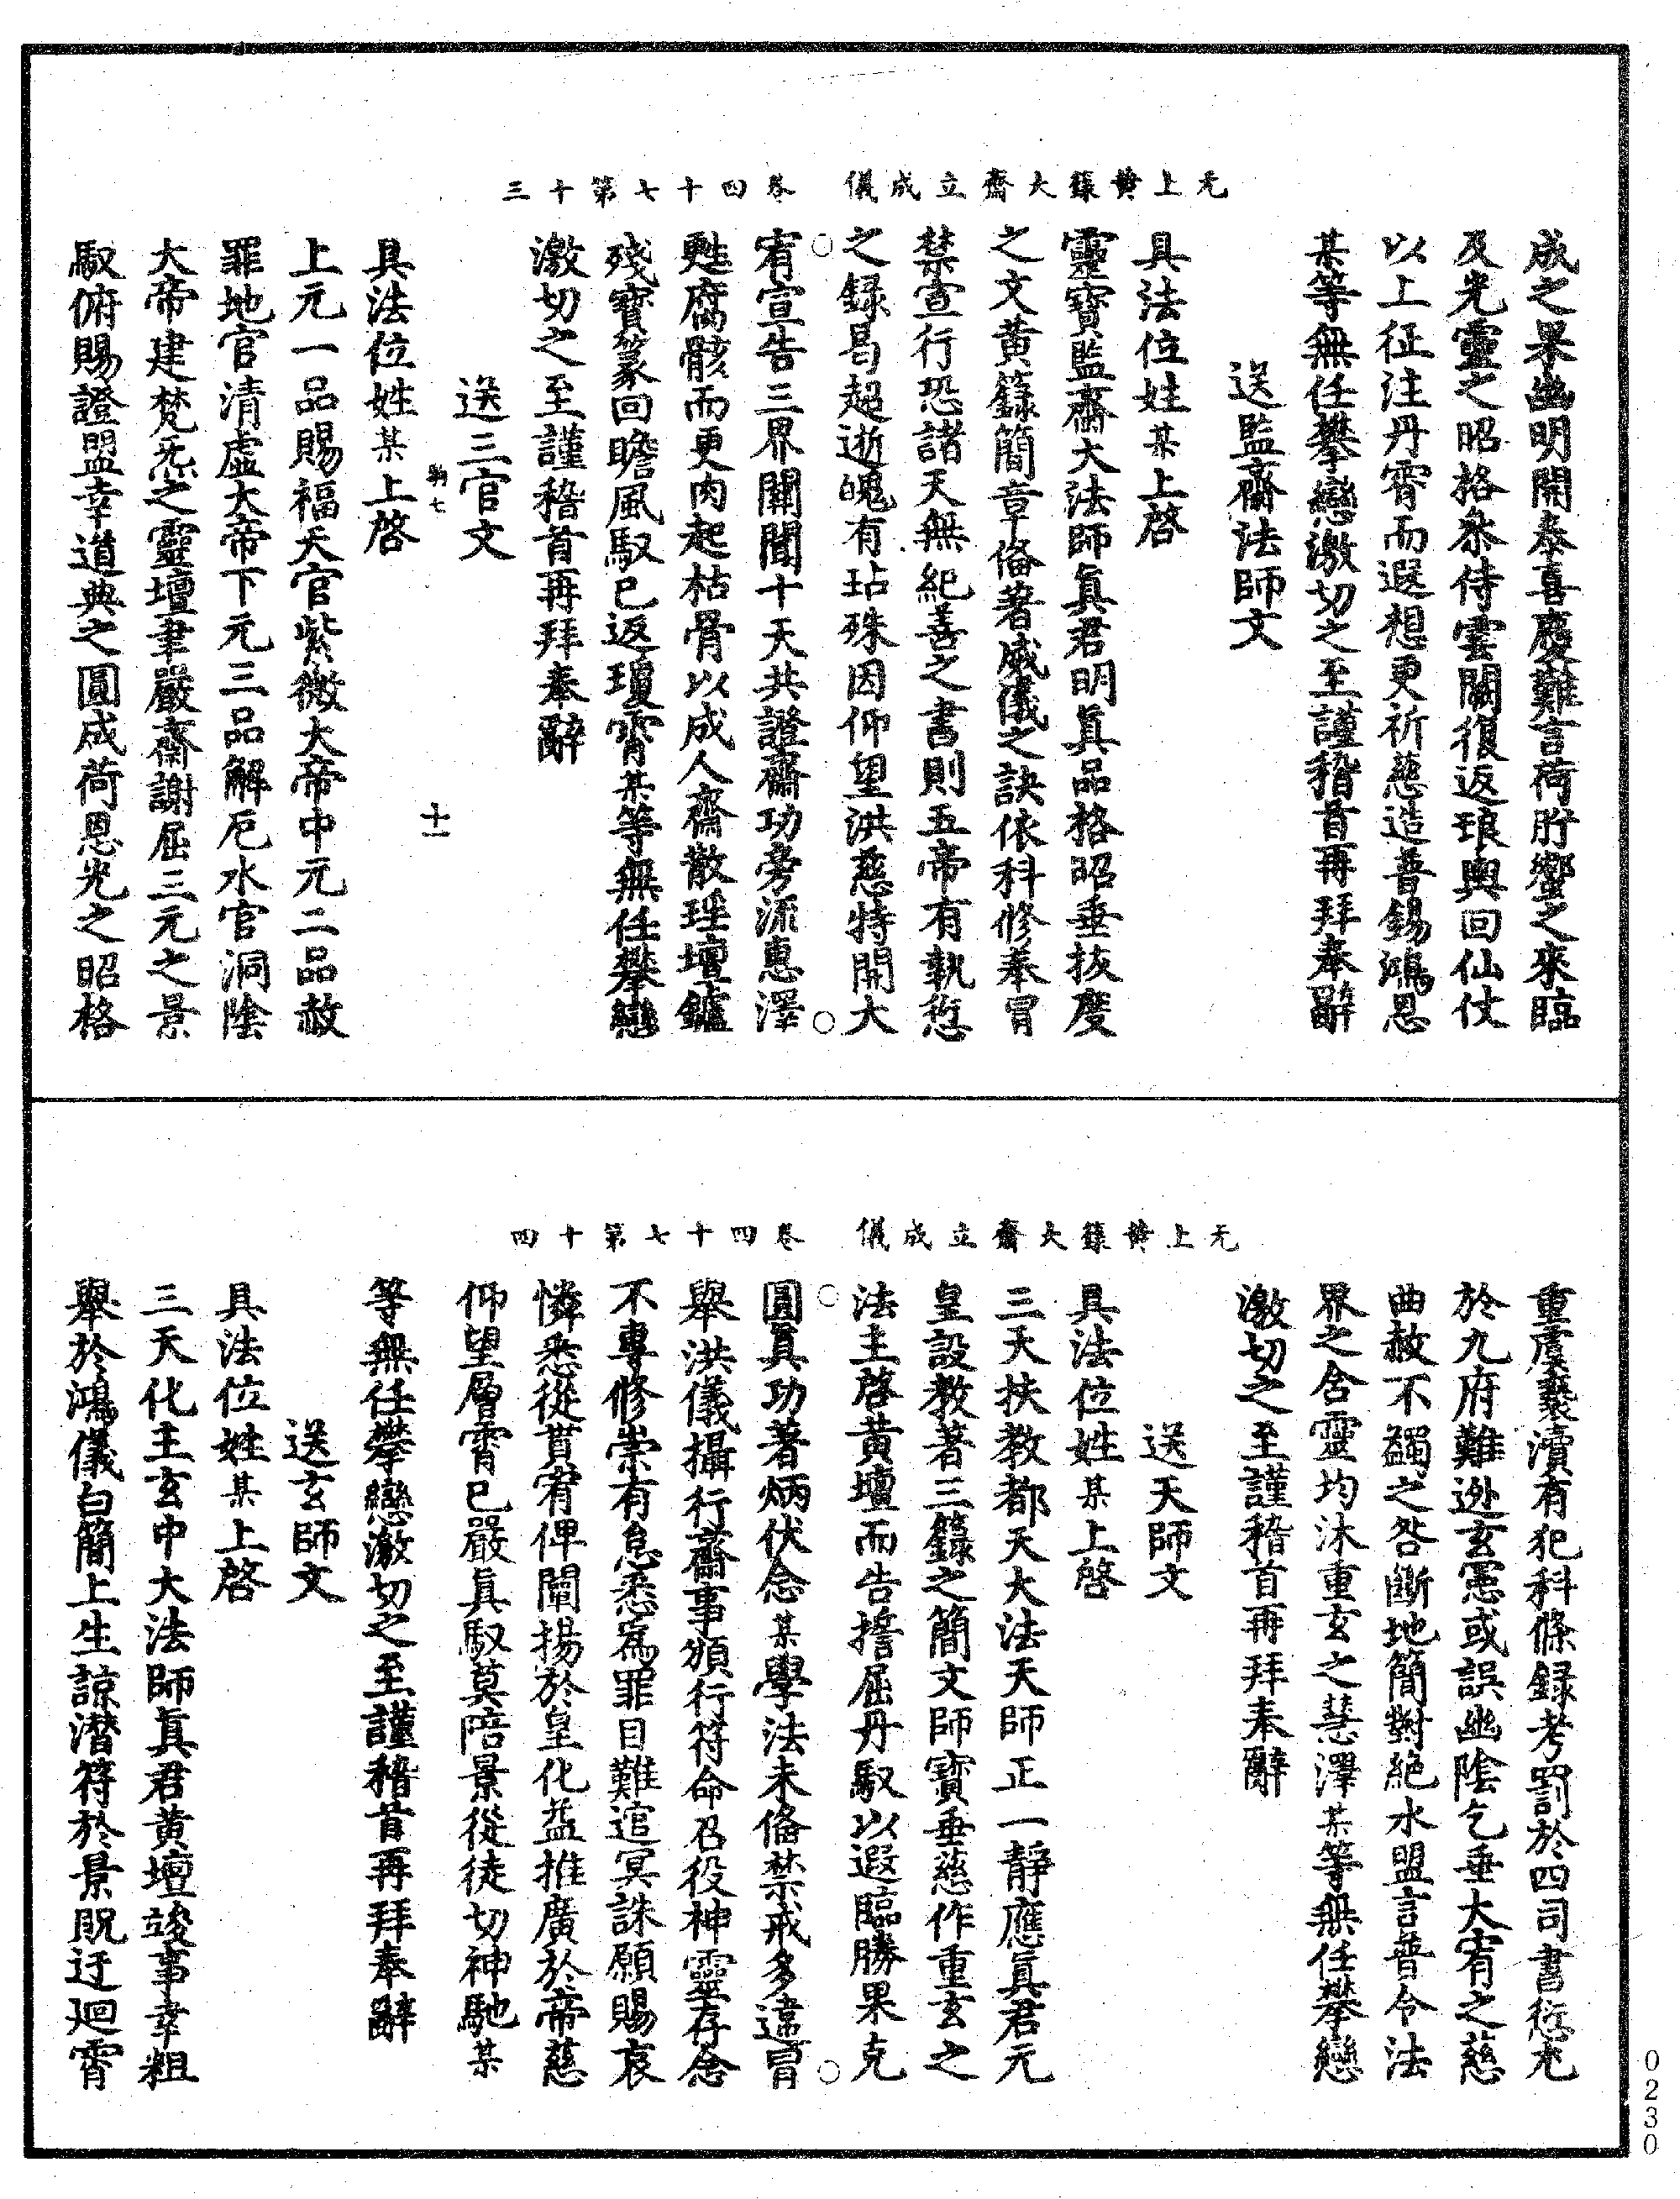 无上黃籙大齋立成儀　卷四十七第十三
成之果幽明開泰喜慶難言荷肸蠁之來臨
及光靈之昭格条侍雲關復返琅輿回仙仗
以上征注丹霄而遐想更祈慈造普錫鴻恩
某等無任攀戀激切之至謹稽首再拜奉辭
送監齋法師文
具法位姓某上啓
靈寶監齋大法師眞君明眞品格昭垂拔度
之文黃籙簡章俻著威儀之訣依科修奉冒
禁宣行恐諸天無紀善之書則五帝有執愆
之録曷超逝魄有玷殊因仰望洪慈特開大
宥宣告三界關聞十天共證齋功旁流惠澤
甦腐骸而更肉起枯骨以成人齋散瑶壇鑪
殘寶篆回瞻風馭已返瓊霄某等無任攀戀
激切之至謹稽首再拜奉辭
送三官文
七
十二
具法位姓某上啓
上元一品賜福天官紫微大帝中元二品赦
罪地官清虛大帝下元三品解厄水官洞陰
大帝建梵炁之靈壇聿嚴齋謝屈三元之景
馭俯賜證盟幸道典之圓成荷恩光之昭格
无上黃籙大齋立成儀　卷四十七第十四
重虞褻瀆有犯科條録考罰於四司書愆尤
於九府難逃玄憲或誤幽陰乞垂大宥之慈
曲赦不蠲之咎斷地簡對絕水盟言普令法
界之含靈均沐重玄之慧澤某等無任攀戀
激切之至謹稽首再拜奉辭
送天師文
具法位姓某上啓
三天扶教都天大法天師正一靜應眞君元
皇設教著三籙之簡文師寶垂慈作重玄之
法主啓黃壇而告誓屈丹馭以遐臨勝果克
圓眞功著炳伏念某學法未俻禁戒多違冒
舉洪儀攝行齋事頒行符命召役神靈存念
不專修崇有怠悉爲罪目難逭冥誅願賜哀
憐悉從貰宥俾闡揚於皇化益推廣於帝慈
仰望層霄已嚴眞馭莫陪景從徒切神馳某
等無任攀戀激切之至謹稽首再拜奉辭
送玄師文
具法位姓某上啓
三天化主玄中大法師眞君黃壇竣事幸粗
舉於鴻儀白簡上生諒潛符於景貺迂廻霄
0230